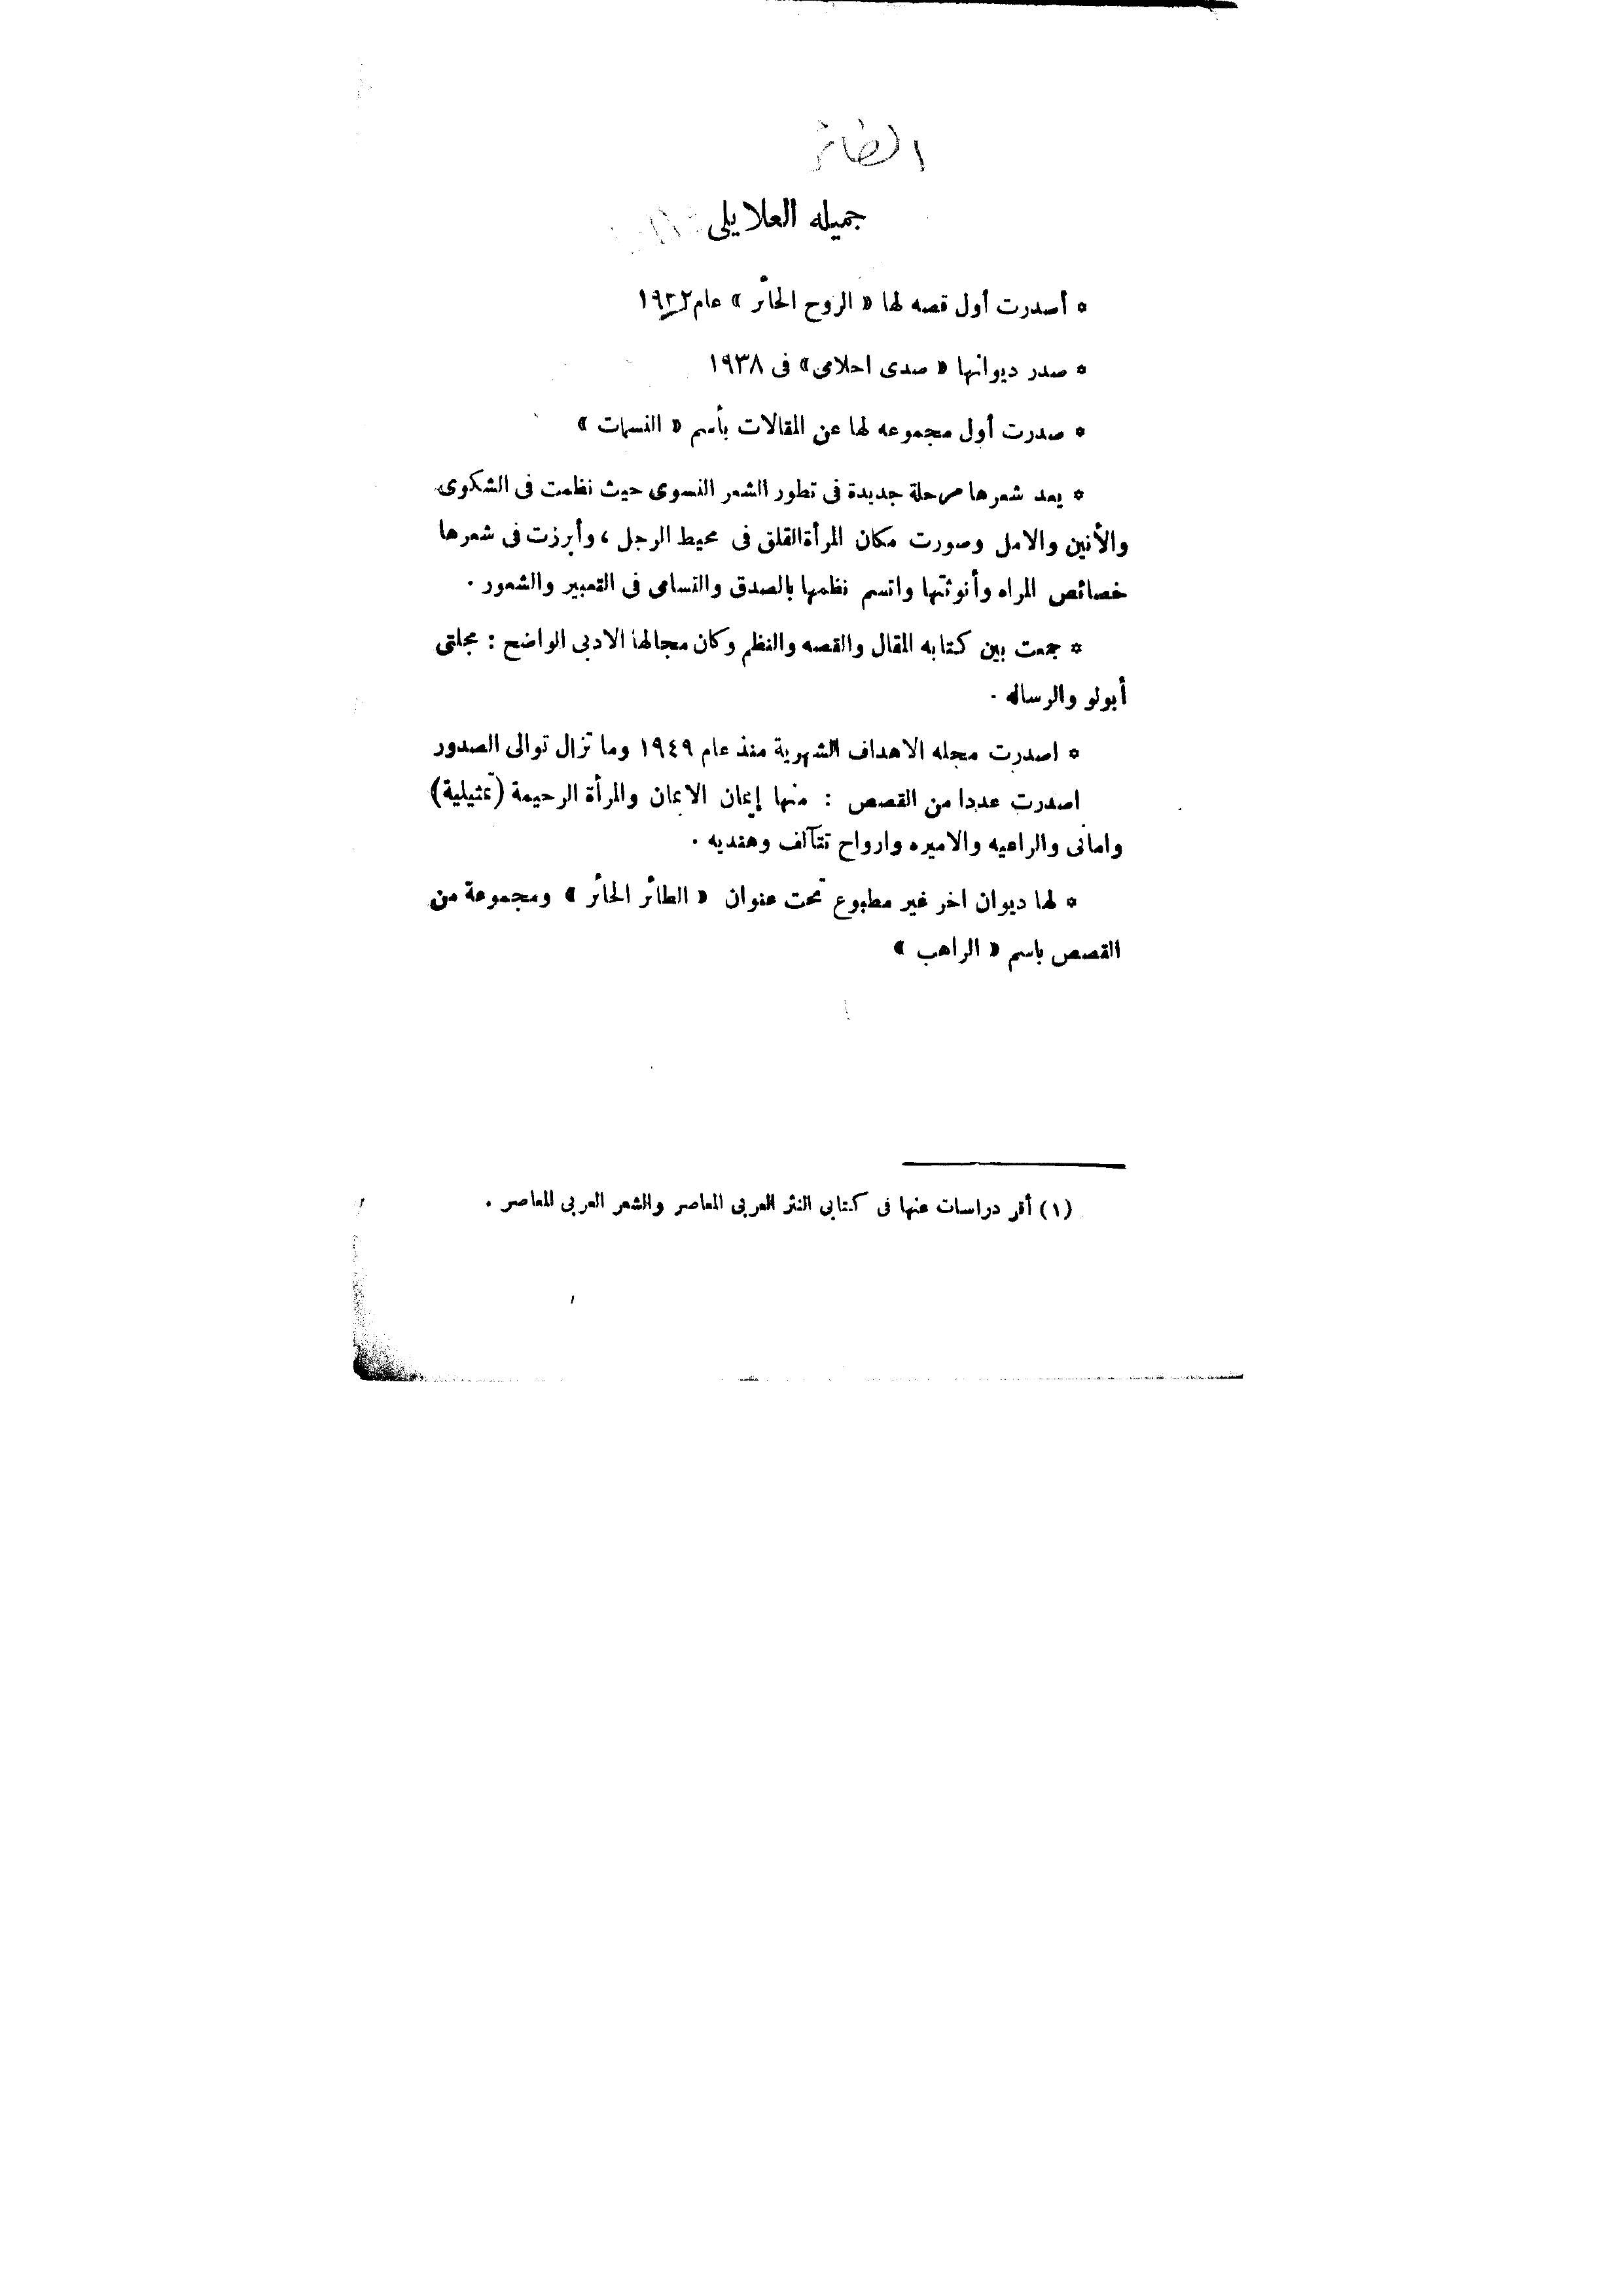 الطائر
جميله العلايلى
* أصدرت أول قصه لها « الروح الحائر » عام ١٩٣٢
* صدر ديوانها « صدى احلامى» فى ١٩٣٨
* صدرت أول مجموعه لها عن المقالات بأسم « النسمات »
* يعد شعرها مرحلة جديدة فى تطور الشعر النسوى حيث نظمت فى الشكوى
والأنين والامل وصورت مكان المرأة القلق فى محيط الرجل ، وأبرزت فى شعرها
خصائص المراه وأنوثتها واتسم نظمها بالصدق والتسامى فى التعبير والشعور .
* جمعت بين كتابه المقال والقصه والنظم وكان مجالها الادبى الواضح : مجلتى
أبولو والرساله .
* اصدرت مجله الاهداف الشهرية منذ عام ١٩٤٩ وما تزال توالى الصدور
اصدرت عددا من القصص : منها إيمان الايمان والمرأة الرحيمة (تمثيلية)
وامانى والراعيه والاميره وارواح تتآلف وهنديه .
* لها ديوان اخر غير مطبوع تحت عنوان « الطائر الحائر » ومجموعة من
القصص باسم « الراهب »
(١) أقر دراسات عنها فى كتابى النثر العربى المعاصر والشعر العربى المعاصر .